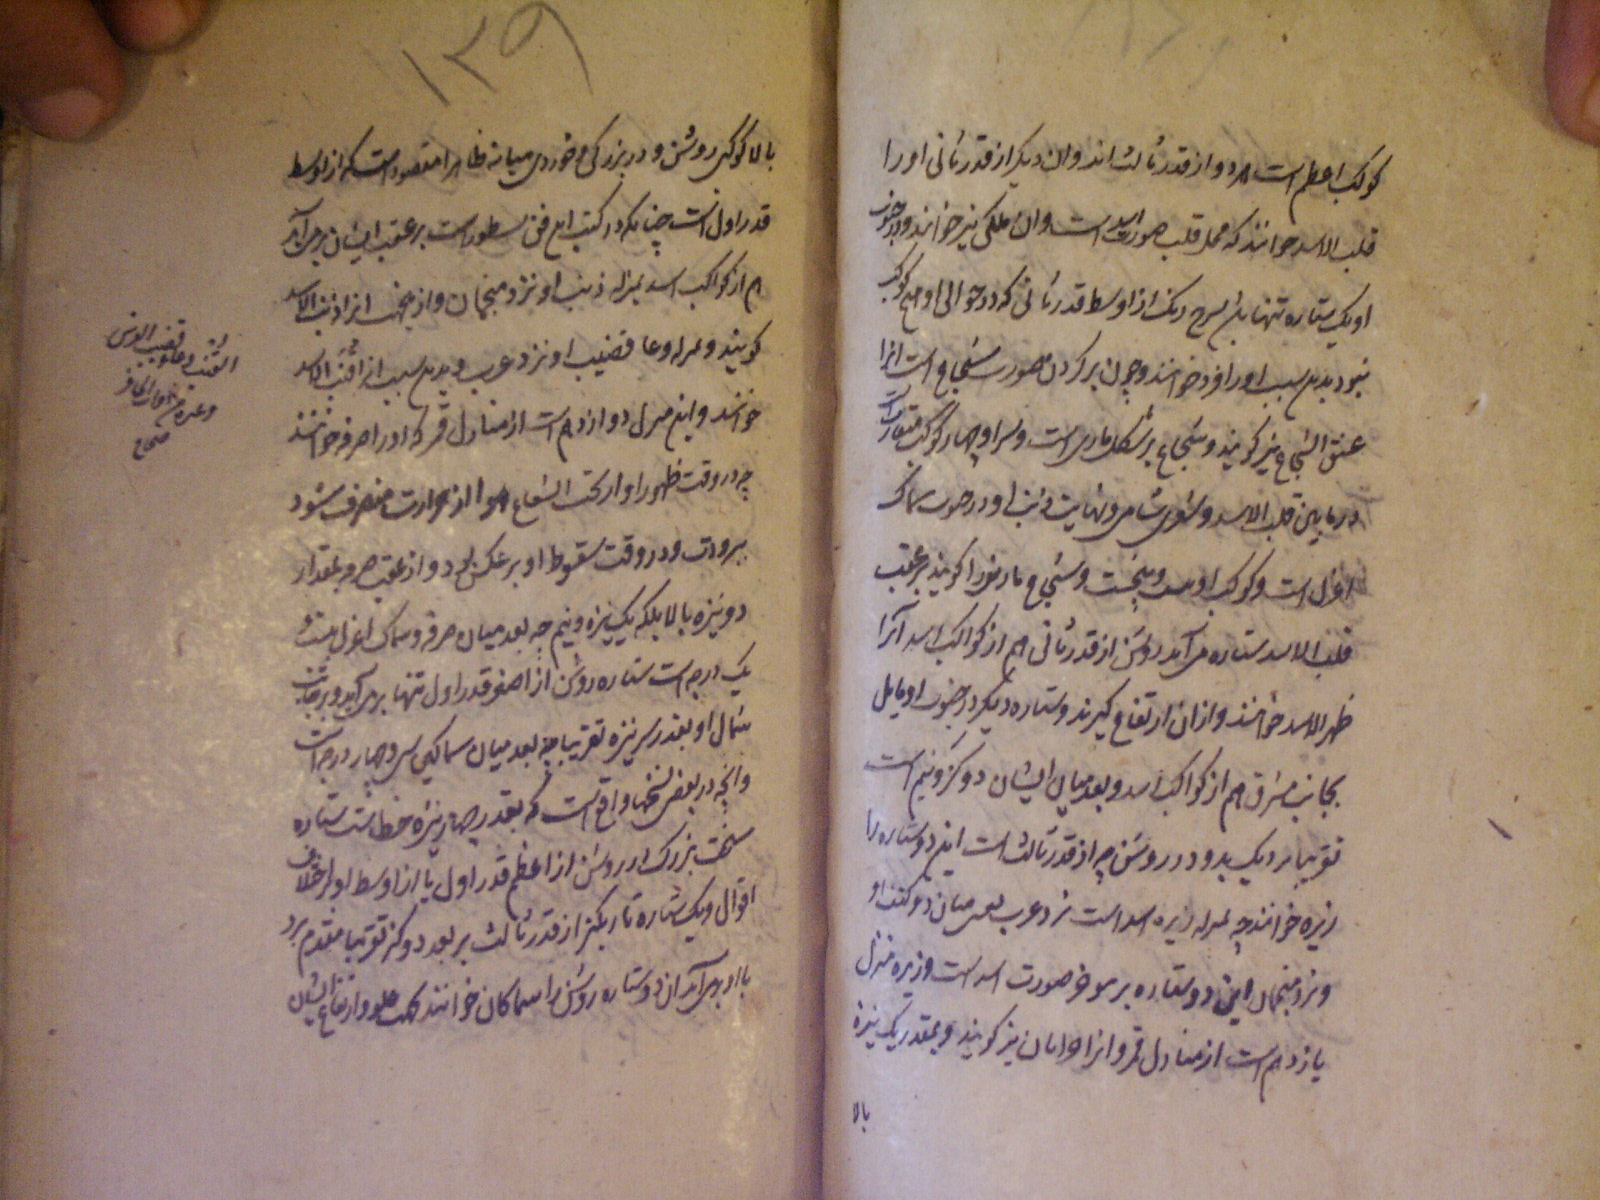 کوکب اعظم است هر دو از قدر ثالث اند و آن دیگر از قدر ثانی او را
قلب الاسد خوانند که محل قلب صورت اسد است و آن ملکی نیز خوانند و در جنوب
او یک ستاره تنها بلئ سرخ رنک از اوسط قدر ثانی که در حوالی او هیچ کوکب
نبود بدین سبب او را فرد خوانند و چون بر کردن صورت شجاع است آنرا
عنق الشجاع نیز کویند و شجاع بر شکل ماری است و سر او چهار کوکب متقارب است
در مابین قلب الاسد و شعری شامی و نهایت ذنب او در جنوب سماک
اعزل است و کوکب او بیست و پنجست و شجاع مار نر را کویند بر عقب
قلب الاسد ستاره می آید روشن از قدر ثانی هم از کواکب اسد آنرا
ظهر الاسد خوانند و از آن ارتفاع کیرند و ستاره دیکر در جنوب او مایل
بجانب مشرق هم از کواکب اسد و بعد میان ایشان دو کز و نیم است
تقریبا نزدیک بدو در روشنی چه از قدر ثالث است این دو ستاره را
زبره خوانند چه بمنزله زبره اسد است نزد عرب یعنی میان دو کتف او
و نزد منجمان این دو ستاره بر موخر صورت اسد است و زبره منزل
یازدهم است از منازل قمر و آنرا خراتان نیز کویند و بمقدار یک نیزه
بالا
۱۳۹
بالا کوکبی روشن و در بزرکی و خوردی میانه ظاهرا مقصود است که از اوسط
قدر اول است چنانکه در کتب این فن مسطور است بر عقب ایشان برمی آید
هم از کواکب اسد بمنزله ذنب او نزد منجمان و از ینجهت آنرا ذنب الاسد
کویند و بمنزله وعاء قضیب او نزد عرب و بدین سبب آنرا قنب الاسد
خوانند و این منزل دوازدهم است از منازل قمر که او را صرفه خوانند
چه در وقت ظهور او از تحت الشعاع هوا از حرارت منصرف شود
ببرودت و در وقت سقوط او بر عکس بود و از عقب صرفه بمقدار
دو نیزه بالا بلکه یک نیزه و نیم چه بعد میان صرفه و سماک اعزل بیست و
یک درجه است ستاره روشن از اصغر قدر اول تنها برمی آید و بر جانب
شمال او بقدر سر نیزه تقریبا چه بعد میان سماکین سی و چهار درجه است
و آنچه در بعض نسخها واقع است که بقدر چهار نیزه خطاست ستاره
سخت بزرک و روشن از اعظم قدر اول یا از اوسط او بر اختلاف
اقوال و یک ستاره تاریکتر از قدر ثالث بر بعد دو کز تقریبا مقدم برو
با او برمی آید آن دو ستاره روشن را سماکان خوانند کلب علو و ارتفاع ایشان
القنب وعاء قضیب الفرس
وغیره من ذوات الحافر
صحاح